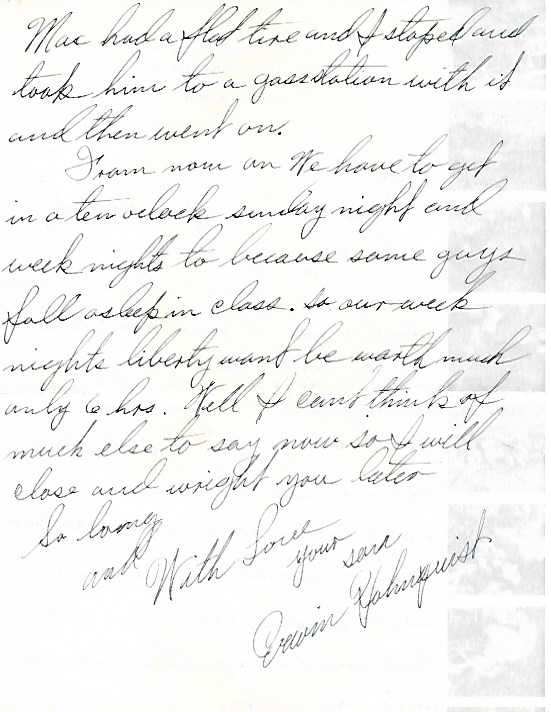 Mac had a flat tire and I stoped and
took him to a gasstation with it
and then went on.
From now on We have to get
in a ten oclock sunday night and
week nights to because some guys
fall asleep in class. so our week
nights liberty want be worth much
only 6 hrs. Well I cant think of
much else to say now so I will
close and wright you later
So loong
and With Love
your son
Erwin Holmquist